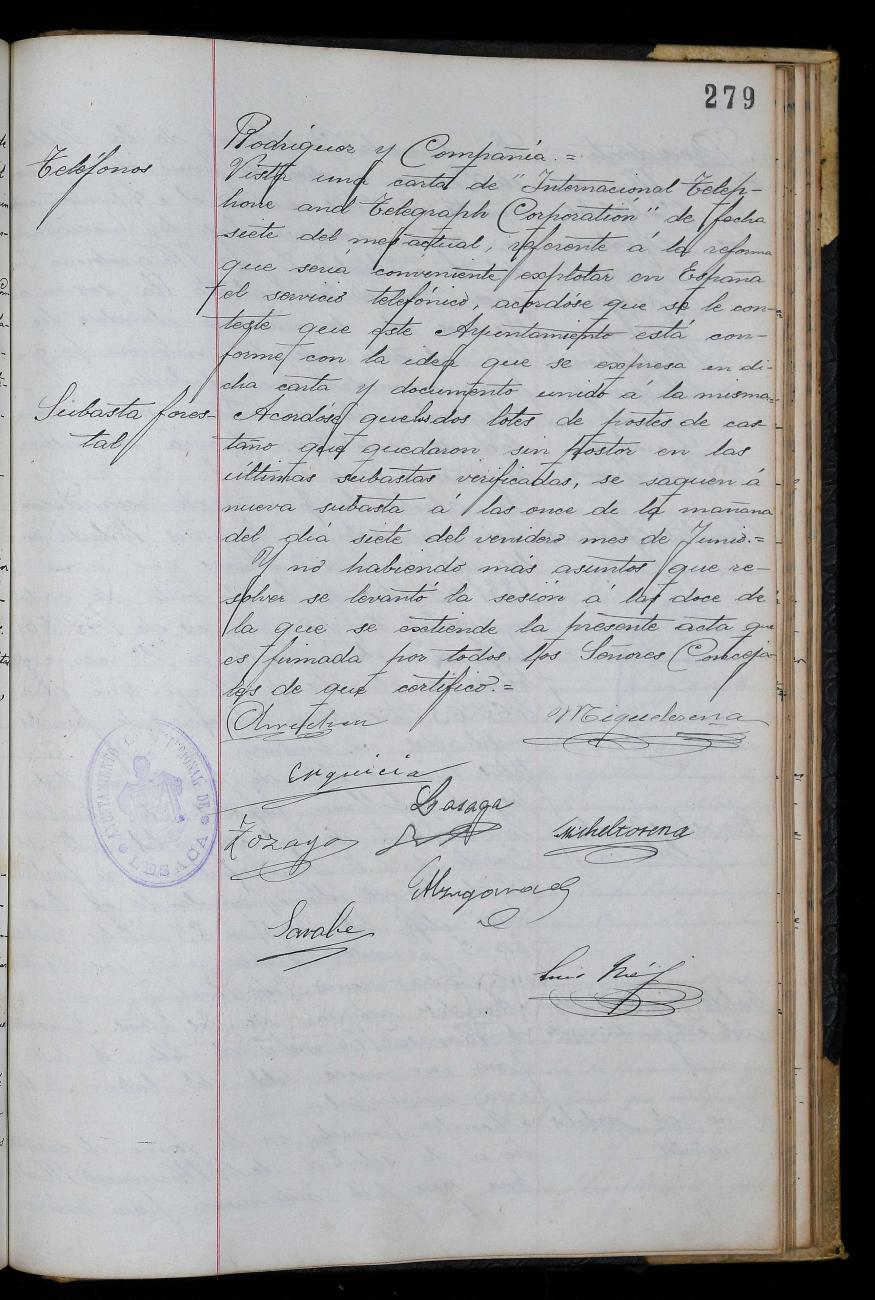 279
Rodriguez y Compañía.=
Teléfonos
Vista una carta de "Internacional Telep-
hone and Telegraph Corporation" de fecha
siete del mes actual, referente á la reforma
que seriá conveniente explotar en España
el servicio telefónico, acordóse que se le con-
teste que este Ayuntamiento está con-
forme con la idea que se expresa en di-
cha carta y documento unido á la misma=
Subasta fores-
tal
Acordóse que los dos lotes de postes de cas-
taño que quedaron sin postor en las
últimas subastas verificadas, se saquen á
nueva subasta á las once de la mañana
del diá siete del venidero mes de Junio.=
Y nó habiendo más asuntos que re-
solver se levantó la sesión á las doce de
la que se extiende la presente acta que
es firmada por todos los Señores Conceja-
les de que certifico.=
Miguelorena
Lasaga
Zozaya
Micheltorena
Sarobe
Luis
AYUNTAMIENTO CONSTITUCIONAL DE
LESACA